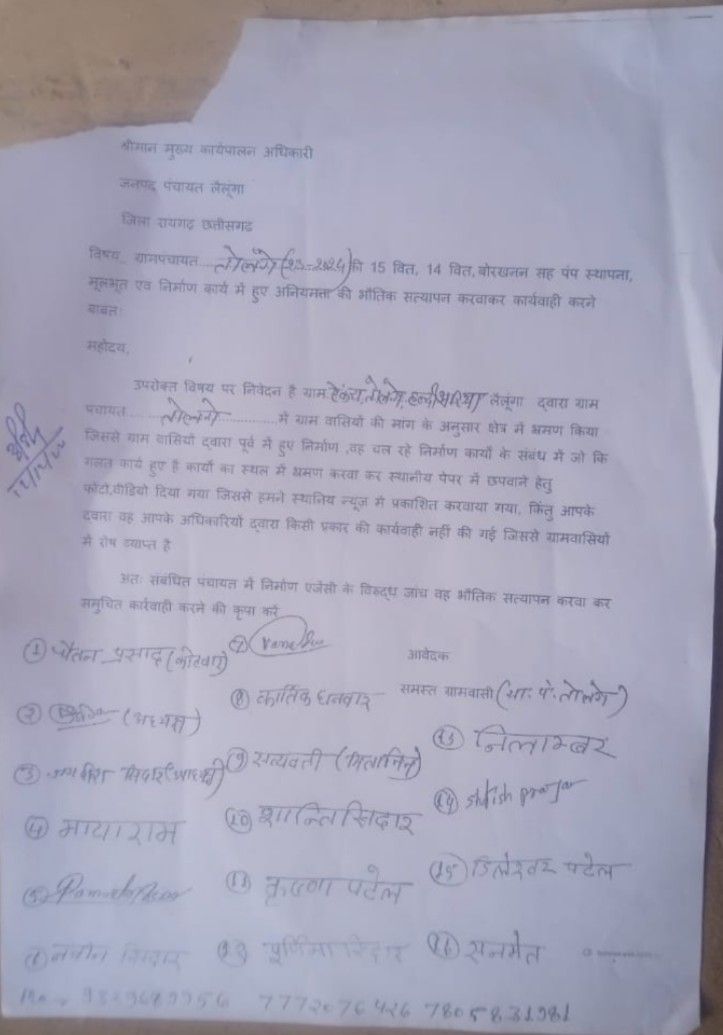 श्रीमान मुख्य कार्यपालन अधिकारी
जनपद पंचायत लैलूंगा
जिला रायगढ़ छत्तीसगढ
विषय_ ग्रामपंचायत ....तोलगे (23-2024) की 15 वित, 14 वित, बोरखनन सह पंप स्थापना,
मूलभूत एवं निर्माण कार्य में हुए अनियमता की भौतिक सत्यापन करवाकर कार्यवाही करने
बाबतः
महोदय,
उपरोक्त विषय पर निवेदन है ग्राम तोलगे, लैलूंगा द्वारा ग्राम
पंचायत.......तोलगे.............में ग्राम वासियों की मांग के अनुसार क्षेत्र में भ्रमण किया
जिससे ग्राम वासियों द्वारा पूर्व में हुए निर्माण ,वह चल रहे निर्माण कार्यों के संबंध में जो कि
गलत कार्य हुए है कार्यो का स्थल में भ्रमण करवा कर स्थानीय पेपर में छपवाने हेतु
फोटो,वीडियो दिया गया जिससे हमने स्थानिय न्यूज में प्रकाशित करवाया गया, किंतु आपके
द्वारा वह आपके अधिकारियों द्वारा किसी प्रकार की कार्यवाही नहीं की गई जिससे ग्रामवासियों
में रोष व्याप्त है
अतः संबंधित पंचायत में निर्माण एजेंसी के विरुद्ध जांच वह भौतिक सत्यापन करवा कर
समुचित कार्रवाही करने की कृपा करें
आवेदक
समस्त ग्रामवासी (ग्रा. पं. तोलगे)
① चैतन प्रसाद (कोटवार)
② (अध्यक्ष)
③ सिदार
④ मायाराम
⑤
⑥ नवीन सिदार
⑦
⑧ कार्तिक धनवार
⑨ सत्यवती (मितानिन)
⑩ शान्ति सिदार
⑪ कृष्णा पटेल
पूर्णिमा सिदार
⑬ निलाम्बर
⑭
⑮ डिलेश्वर पटेल
⑯ सनमेत
7772076426 7805831981